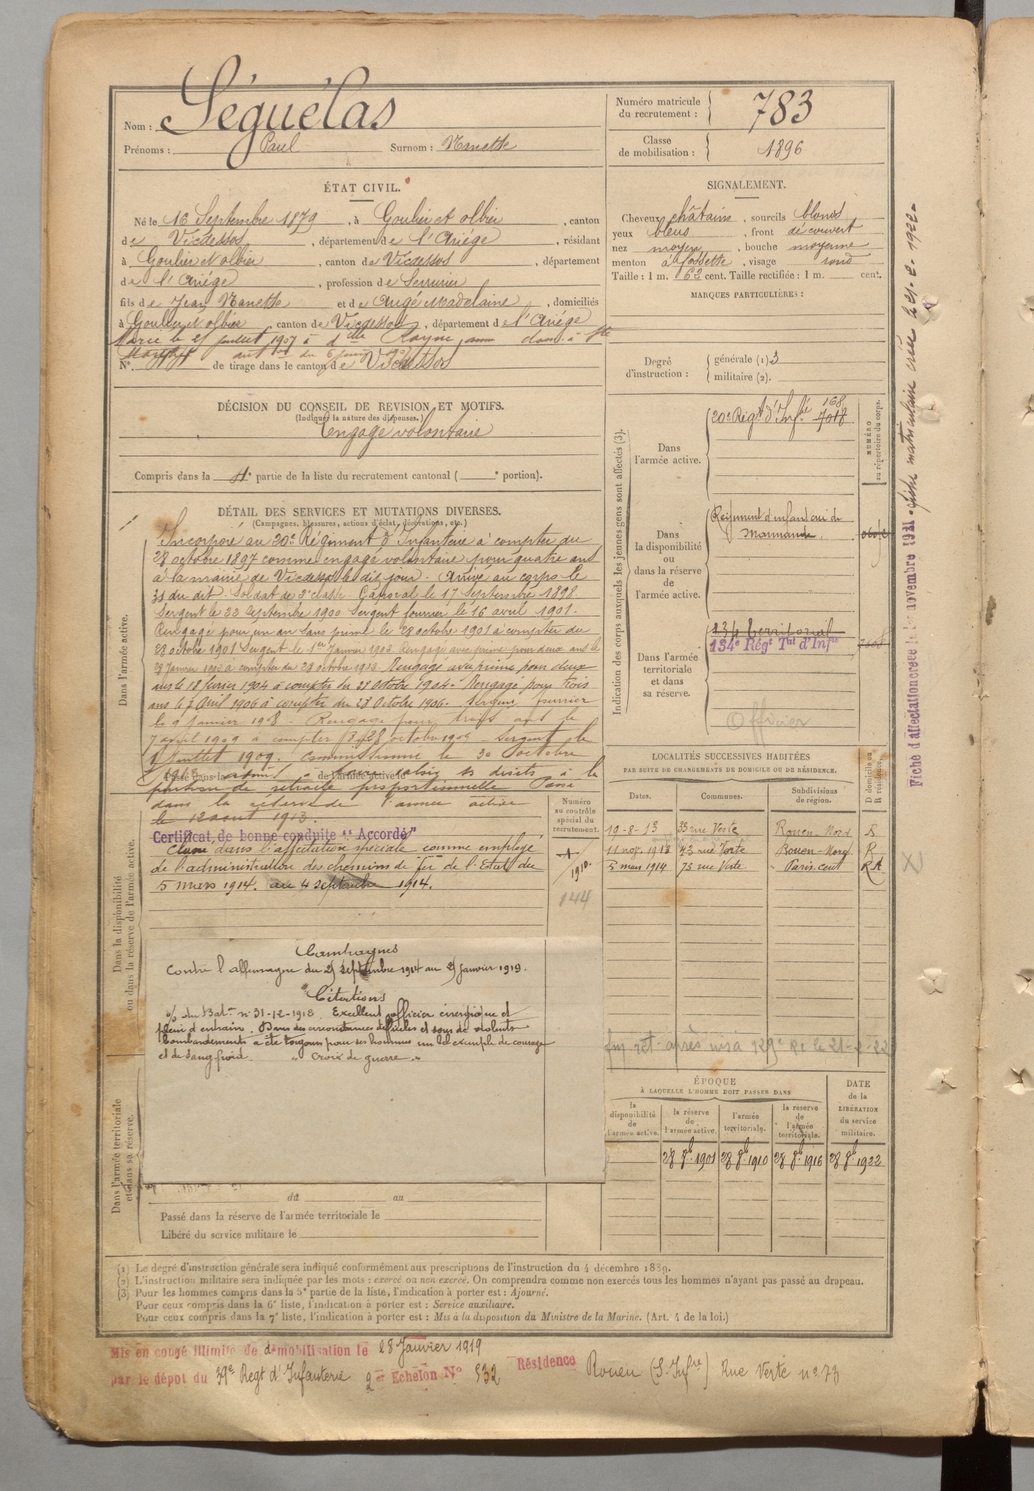 Nom : Séguélas
Prénoms : Paul Surnom : Nanette
Numéro matricule du recrutement : 783
Classe de mobilisation : 1896
ÉTAT CIVIL.
Né le 16 Septembre 1879, à Goulier et olbier, canton
de Vicdessos, département de l'Ariége, résidant
à Goulier et olbier, canton de Vicdessos, département
de l'Ariége, profession de Serrurier
fils de Jean Nanette et de Augé Madelaine, domiciliés
à Goulier et olbier, canton de Vicdessos, département de l'Ariége
Marié le 25 juillet 1907 à dlle Rayne
N° de tirage dans le canton de Vicdessos
SIGNALEMENT.
Cheveux châtains, sourcils blonds
yeux bleus, front découvert
nez moyen, bouche moyenne
menton à fossette, visage rond
Taille : 1 m. 62 cent. Taille rectifiée : 1 m. cent.
MARQUES PARTICULIÈRES :
Degré d'instruction : générale (1) 3
militaire (2).
DÉCISION DU CONSEIL DE REVISION ET MOTIFS.
(Indiquer la nature des dispenses.)
Engagé volontaire
Compris dans la 4e partie de la liste du recrutement cantonal ( e portion).
DÉTAIL DES SERVICES ET MUTATIONS DIVERSES.
(Campagnes, blessures, actions d'éclat, décorations, etc.)
Dans l'armée active.
Incorporé au 20e Régiment d'Infanterie à compter du
28 octobre 1897 comme engagé volontaire pour quatre ans
à la mairie de Vicdessos le dit jour. Arrivé au corps le
31 du dit. Soldat de 2e classe. Caporal le 17 Septembre 1898.
Sergent le 23 Septembre 1900 Sergent fourrier le 16 avril 1901.
Rengagé pour un an sans prime le 28 octobre 1901 à compter du
28 octobre 1901 Sergent le 1er Janvier 1902 Rengagé avec prime pour deux ans le
28 Janvier 1902 à compter du 28 octobre 1902. Rengagé avec prime pour deux
ans le 18 février 1904 à compter du 28 octobre 1904. Rengagé pour trois
ans le 7 Avril 1906 à compter du 28 Octobre 1906. Sergent fourrier
le 9 Janvier 1908. Rengagé pour trois ans le
7 avril 1909 à compter du 28 octobre 1909 Sergent le
juillet 1909. Commissionné le 30 octobre
valoir ses droits à la
pension de retraite proportionnelle. Passé
dans la réserve de l'armée active
le 12 août 1913.
Certificat de bonne conduite "Accordé"
Dans la disponibilité ou dans la réserve de l'armée active.
Classé dans l'affectation spéciale comme employé
de l'administration des chemins de fer de l'Etat du
5 mars 1914. au 4 septembre 1914.
Numéro au contrôle spécial du recrutement.
1910.
144
Campagnes
Contre l'allemagne du 25 septembre 1914 au 27 janvier 1919.
Citations
o/ du Bat. n° 31-12-1918. Excellent officier énergique et
plein d'entrain. Dans des circonstances difficiles et sous de violents
bombardements a été toujours pour ses hommes un bel exemple de courage
et de sang froid. " Croix de guerre "
Dans l'armée territoriale et dans sa réserve.
du au
Passé dans la réserve de l'armée territoriale le
Libéré du service militaire le
Indication des corps auxquels les jeunes gens sont affectés (3).
Dans l'armée active.
20e Régt d'Infie 168
7018
NUMÉRO au répertoire du corps.
Dans la disponibilité ou dans la réserve de l'armée active.
Régiment d'infanterie de
Marmande.
Dans l'armée territoriale et dans sa réserve.
134 territorial
134e Régt Tal d'Infie
Officier
LOCALITÉS SUCCESSIVES HABITÉES
PAR SUITE DE CHANGEMENTS DE DOMICILE OU DE RÉSIDENCE.
Dates. Communes. Subdivisions de région. D domicile ou R résidence.
19-8-13 33 rue Verte Rouen-Nord R
11 nov. 1913 73 rue Verte Rouen-Nord R
5 mars 1914 73 rue Verte Paris cent RA
ÉPOQUE
À LAQUELLE L'HOMME DOIT PASSER DANS
la disponibilité de l'armée active.
la réserve de l'armée active.
l'armée territoriale.
la réserve de l'armée territoriale.
DATE de la LIBÉRATION du service militaire.
28 8bre 1901 28 8bre 1910 28 8bre 1916 28 8bre 1922
(1) Le degré d'instruction générale sera indiqué conformément aux prescriptions de l'instruction du 4 décembre 1889.
(2) L'instruction militaire sera indiquée par les mots : exercé ou non exercé. On comprendra comme non exercés tous les hommes n'ayant pas passé au drapeau.
(3) Pour les hommes compris dans la 5e partie de la liste, l'indication à porter est : Ajourné.
Pour ceux compris dans la 6e liste, l'indication à porter est : Service auxiliaire.
Pour ceux compris dans la 7e liste, l'indication à porter est : Mis à la disposition du Ministre de la Marine. (Art. 4 de la loi.)
Mis en congé illimité de démobilisation le 28 Janvier 1919
par le dépot du 39e Regt d'Infanterie 2e Echelon N° 532 Résidence Rouen (S. Infre) Rue Verte n° 73
Fiche d'affectation créée le 1er novembre 1921. fiche matriculaire créée le 21-2-1922.